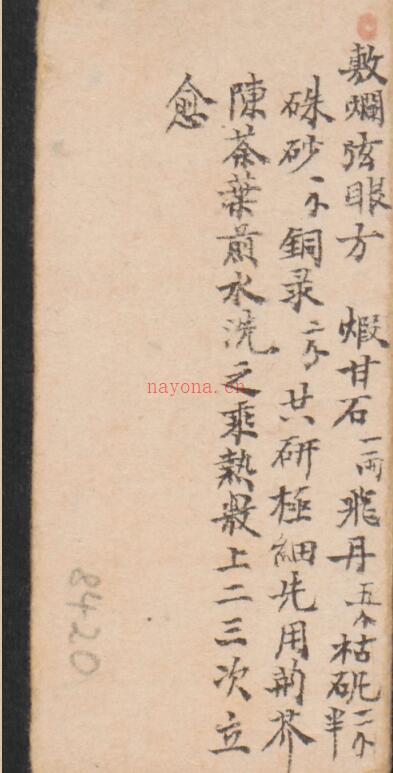 敷爛弦眼方　煆甘石一兩飛丹五个枯矾二个半
硃砂一个銅录二个共研極細先用荊芥
陳茶葉煎水洗之乘熱敷上二三次立
愈
nayona.cn
8420